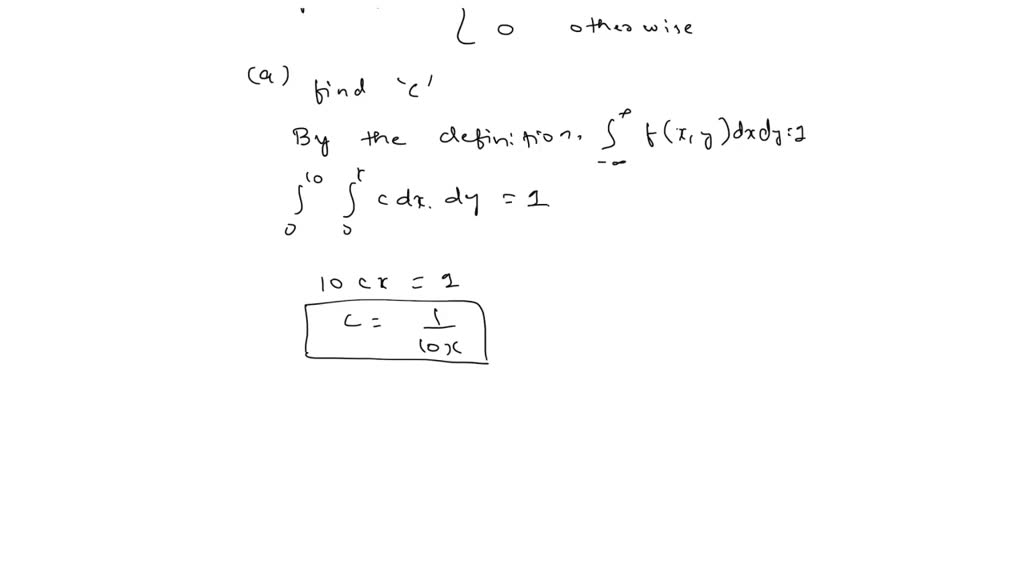 { 0 otherwise
(a) find 'c'
By the definition, ∫_{-∞}^{∞} f(x,y)dxdy=1
∫_0^{10} ∫_0^x c dx. dy = 1
10 cx = 1
c = 1/10x